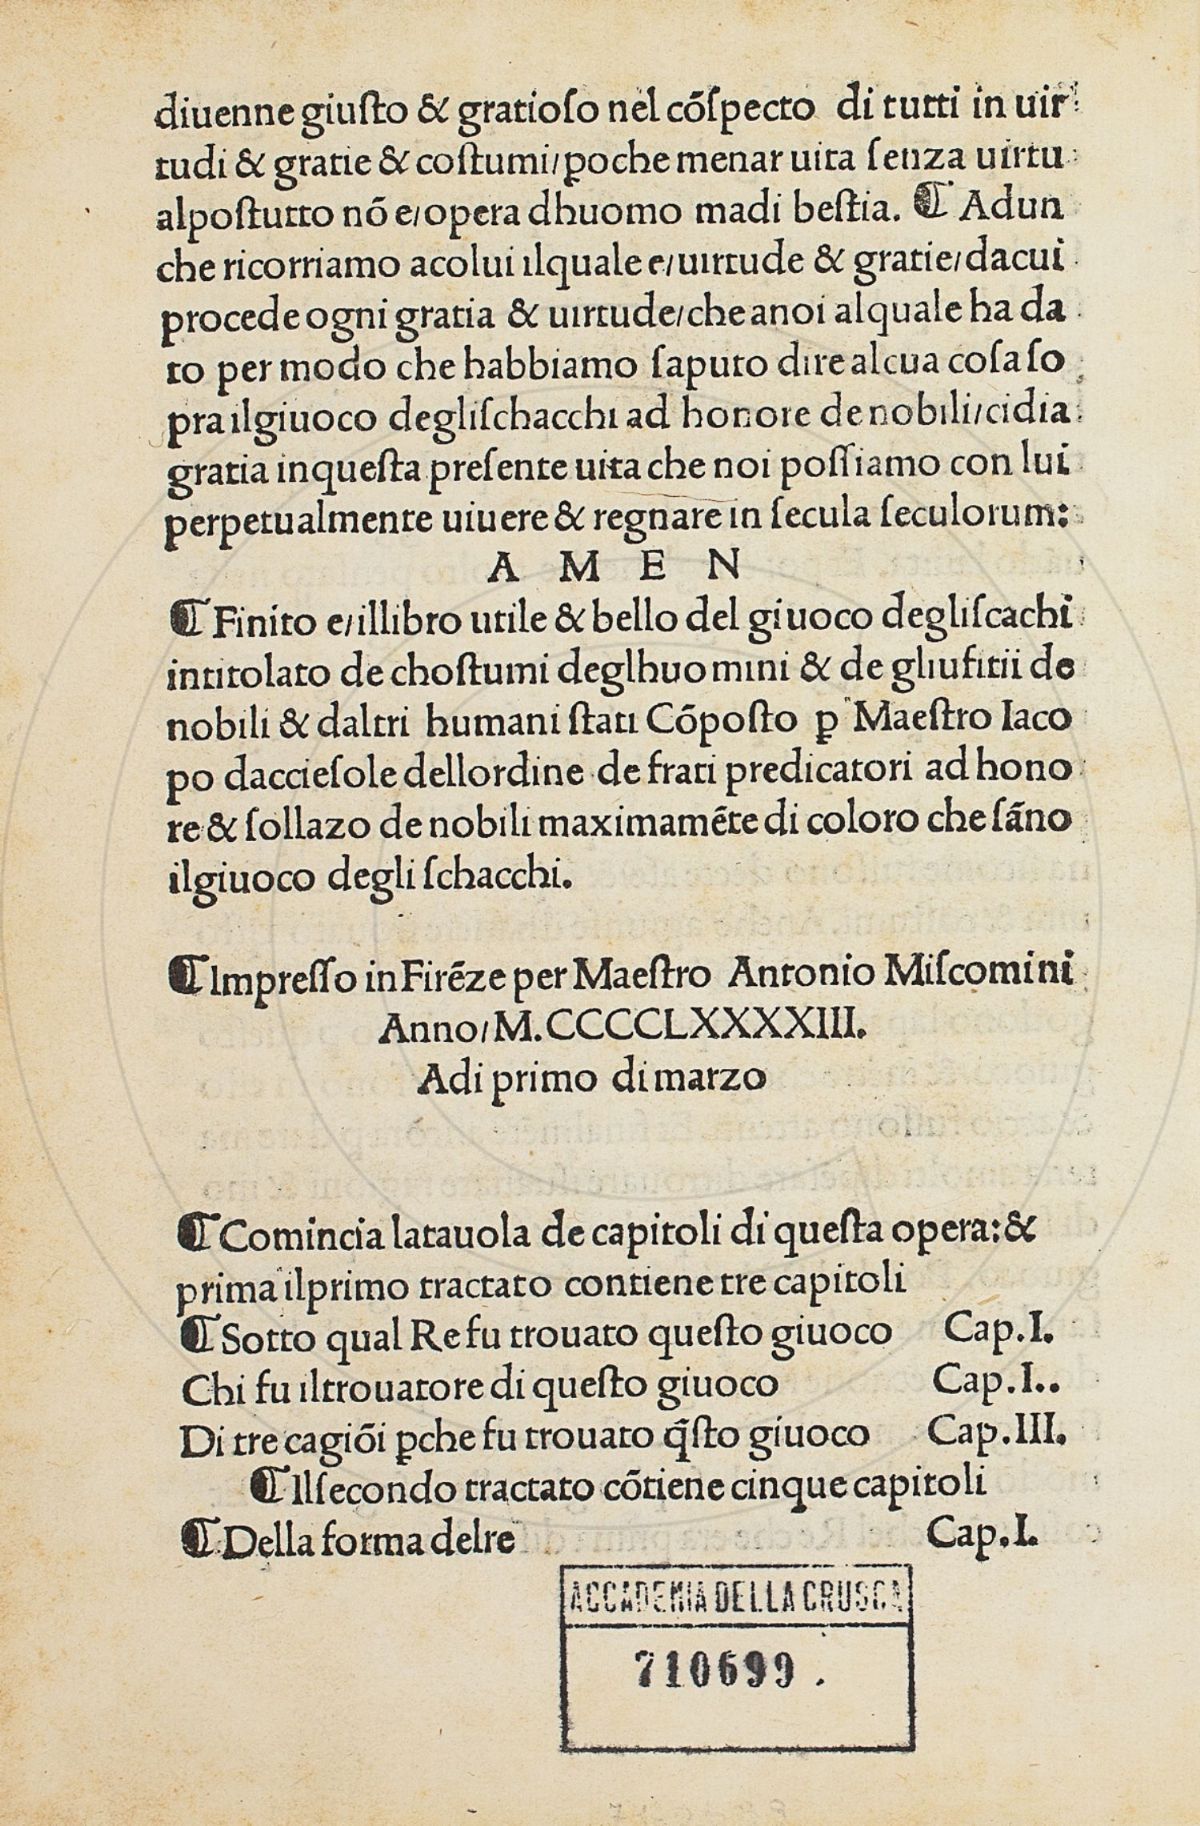 diuenne giuſto & gratioſo nel cõſpecto di tutti in uir
tudi & gratie & coſtumi/ꝑoche menar uita ſenza uirtu
alpoſtutto nõ e/opera dhuomo madi beſtia. ¶ Adun
che ricorriamo acolui ilquale e/uirtude & gratie/dacui
procede ogni gratia & uirtude/che anoi alquale ha da
to per modo che habbiamo ſaputo dire alcua coſa ſo
pra ilgiuoco degliſchacchi ad honore de nobili/cidia
gratia inqueſta preſente uita che noi poſſiamo con lui
perpetualmente uiuere & regnare in ſecula ſeculorum:
A M E N
¶ Finito e/illibro utile & bello del giuoco degliſcachi
intitolato de choſtumi deglhuomini & de gliufitii de
nobili & daltri humani ſtati Cõpoſto ꝑ Maeſtro Iaco
po daccieſole dellordine de frati predicatori ad hono
re & ſollazo de nobili maximamẽte di coloro che ſãno
ilgiuoco degli ſchacchi.
¶ Impreſſo in Firẽze per Maeſtro Antonio Miſcomini
Anno/M.CCCCLXXXXIII.
Adi primo di marzo
¶ Comincia latauola de capitoli di queſta opera:&
prima ilprimo tractato contiene tre capitoli
¶ Sotto qual Re fu trouato queſto giuoco Cap.I.
Chi fu iltrouatore di queſto giuoco Cap.I..
Di tre cagiõi ꝑche fu trouato q̃ſto giuoco Cap.III.
¶ Ilſecondo tractato cõtiene cinque capitoli
¶ Della forma delre Cap.I.
ACCADEMIA DELLA CRUSCA
710699.